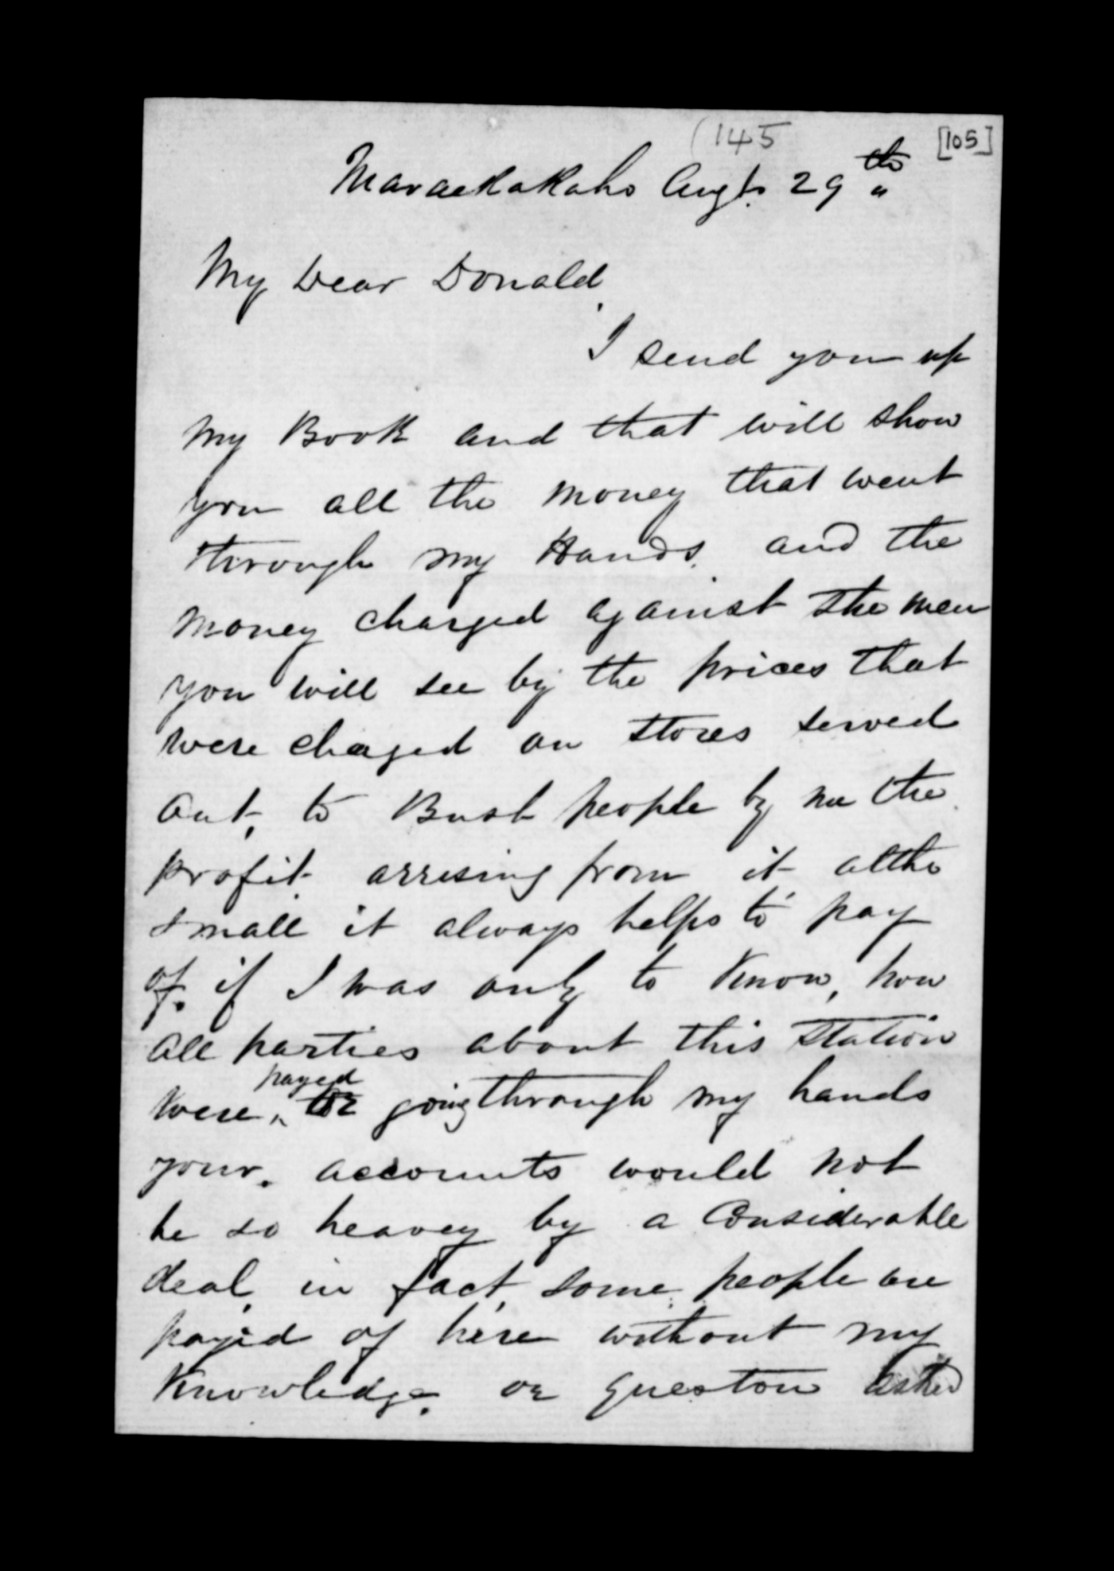 (145
[105]
Maraekakaho Augt. 29th
My Dear Donald
I send you up
my Book and that will show
you all the money that went
through my Hands. and the
money charged against the men
you will see by the prices that
were charged on stores served
out, to Bush people by me the
profit arresing from it altho
small it always helps to pay
of. if I was only to Know, how
all parties about this Station
were, payed going through my hands
your. accounts would not
be so heavey by a Considerable
deal, in fact, some people are
payed of here without my
Knowledge. or queston